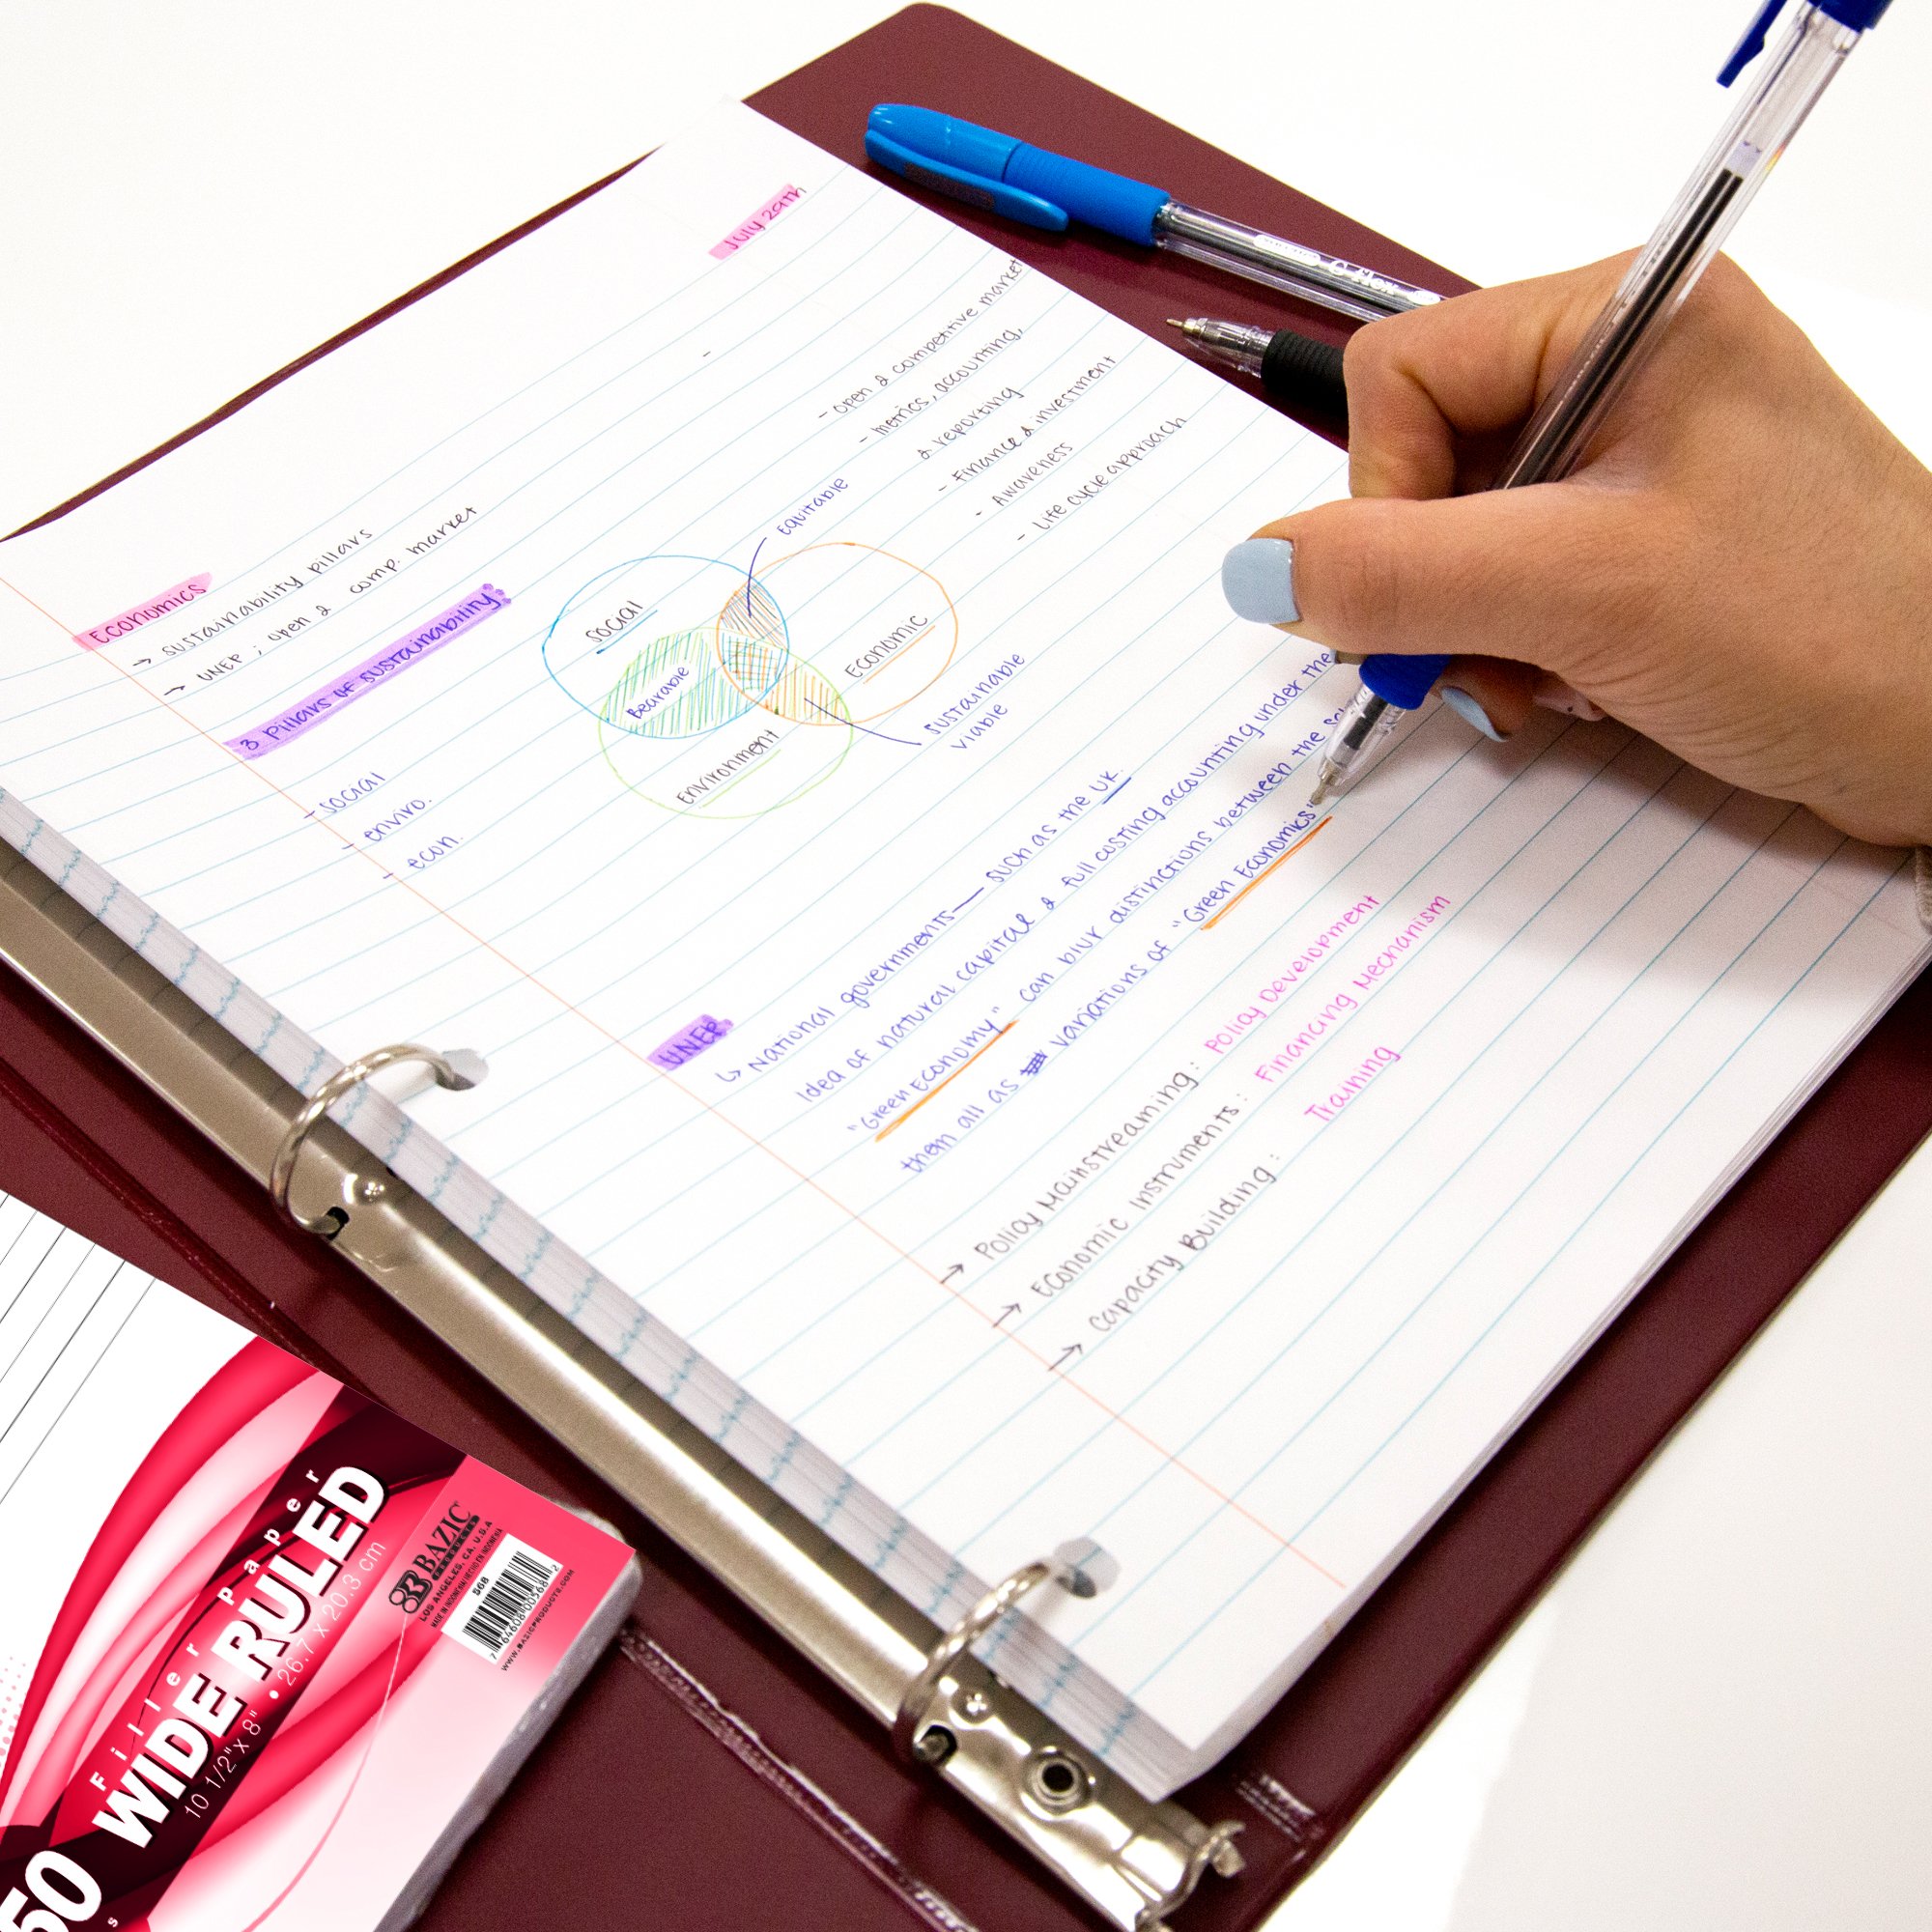 July 29th
Economics
→ sustainability pillars
→ UNEP ; open & comp. market
3 Pillars of sustainability:
- social
- enviro.
- econ.
social
Economic
Bearable
Environment
Equitable
sustainable
viable
- open & competitive market
- metrics, accounting,
& reporting
- Finance & investment
- Awareness
- Life cycle approach
UNEP
↳ National governments — such as the UK.
Idea of natural capital & full costing accounting under the
"Green Economy" can blur distinctions between the
them all as variations of "Green Economics"
→ Policy Mainstreaming : Policy Development
→ Economic Instruments : Financing Mechanism
→ Capacity Building : Training
Filler Paper
WIDE RULED
10 1/2" x 8" • 26.7 x 20.3 cm
50
BAZIC
PRODUCTS
LOS ANGELES, CA, U.S.A
MADE IN INDONESIA/HECHO EN INDONESIA
568
7 64608 00568 2
www.BAZICPRODUCTS.COM